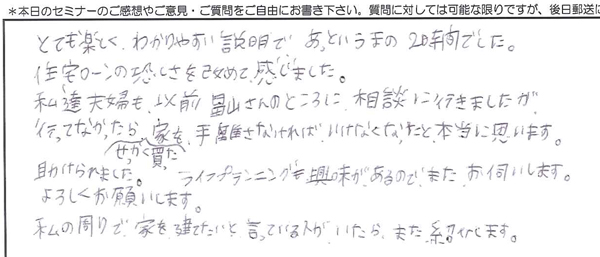 *本日のセミナーのご感想やご意見・ご質問をご自由にお書き下さい。質問に対しては可能な限りですが、後日郵送に
とても楽しく、わかりやすい説明で あっというまの 2時間でした。
住宅ローンの恐しさを改めて、感じました。
私達夫婦も、以前 畠山さんのところに、相談に行きましたが
行ってなかったら、家を、手離さなければ いけなくなったと、本当に思います。
せっかく買った
助けられました。 ライフプランニングも興味があるので、また、お伺いします。
よろしくお願いします。
私の周りで、家を建てたいと、言っている人が、いたら、また 紹介します。